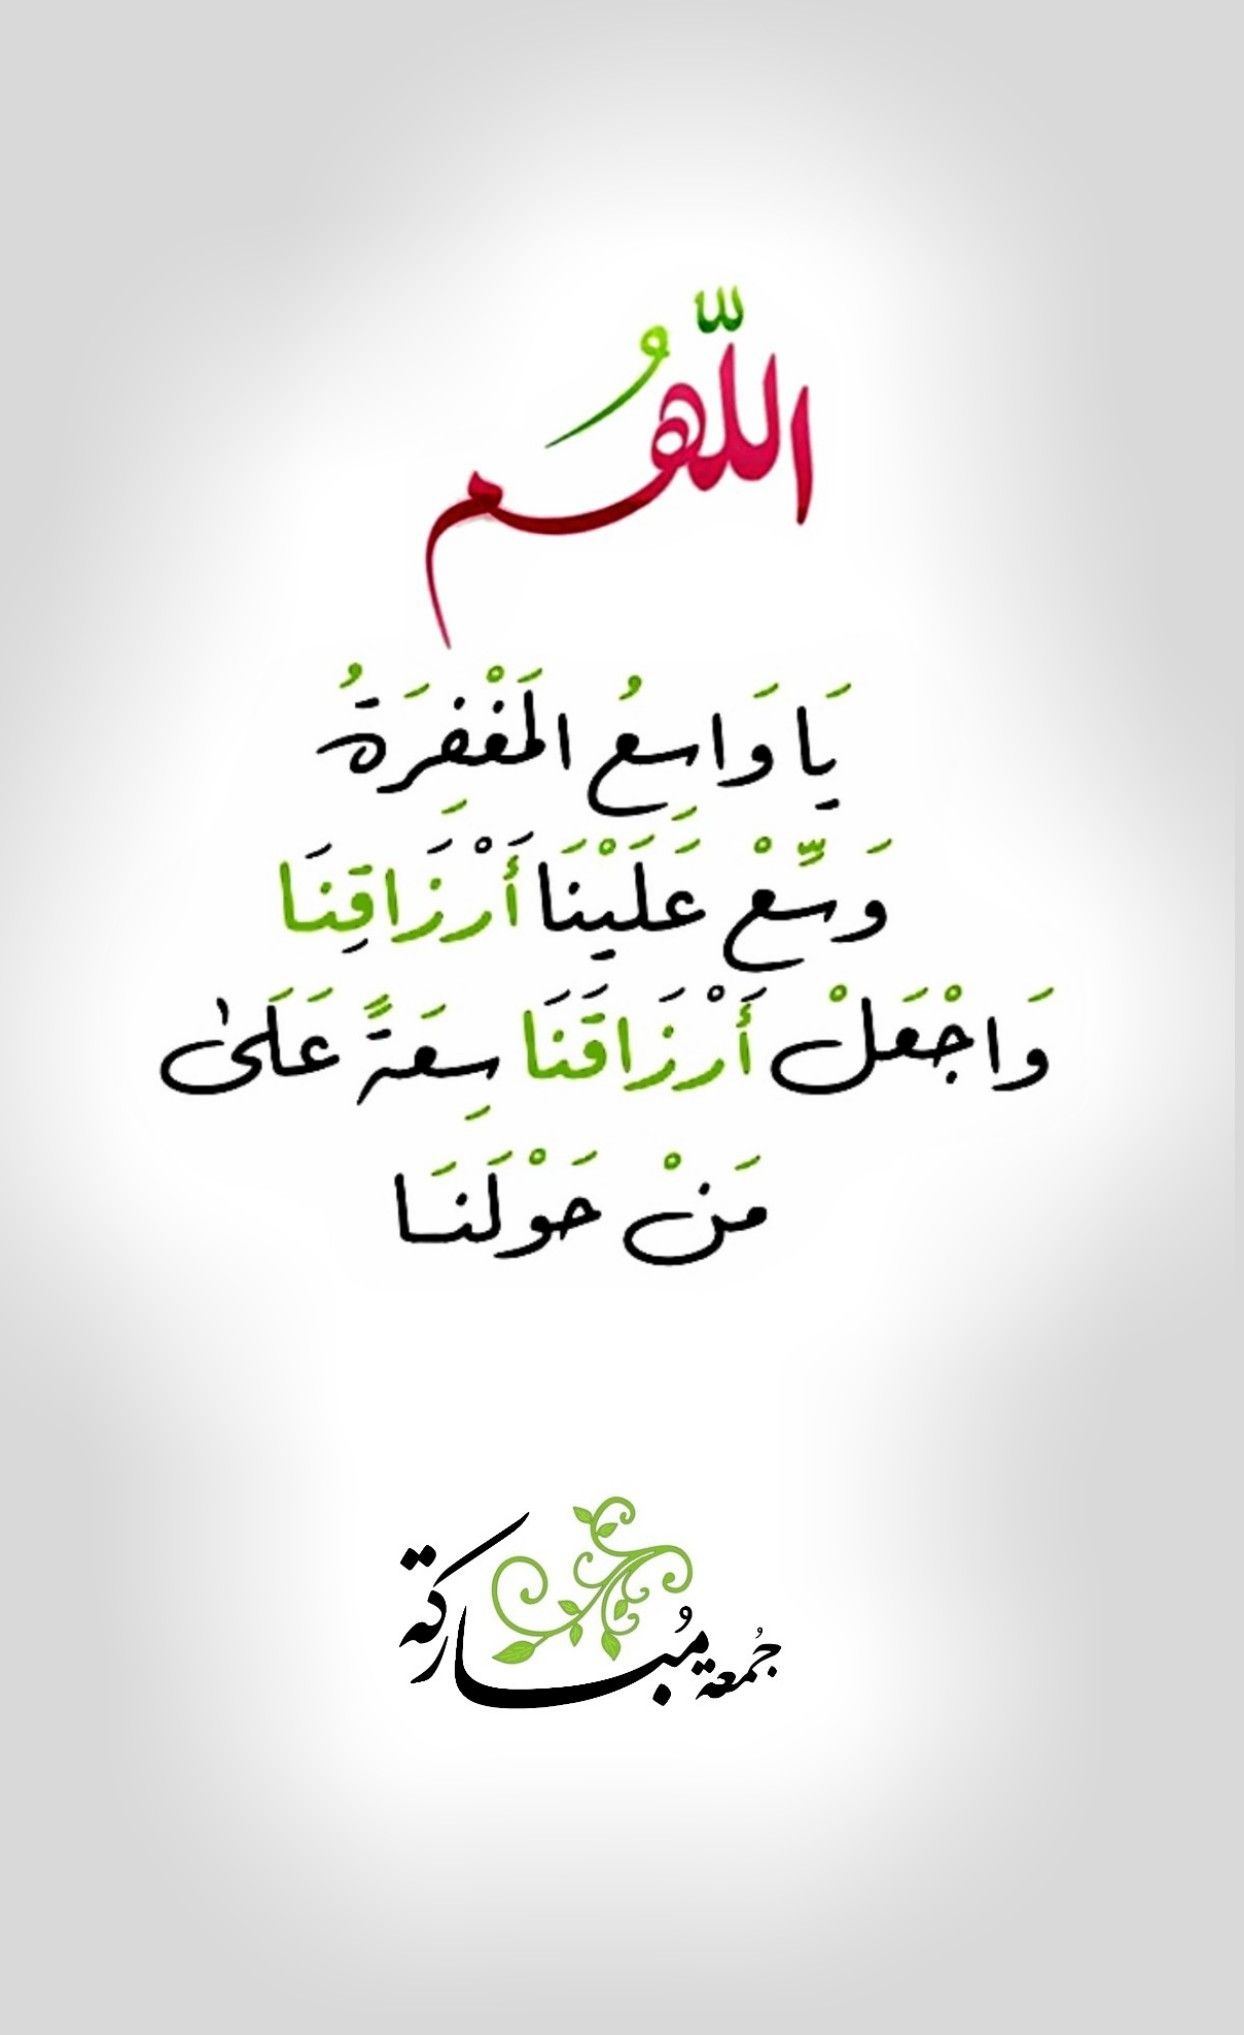 اللّهُم
يَا وَاسِعُ المَغْفِرَةُ
وَسِّعْ عَلَيْنَا أَرْزَاقِنَا
وَاجْعَلْ أَرْزَاقَنَا سِعَةً عَلَىٰ
مَنْ حَوْلَنَا
جُمعة مُباركة